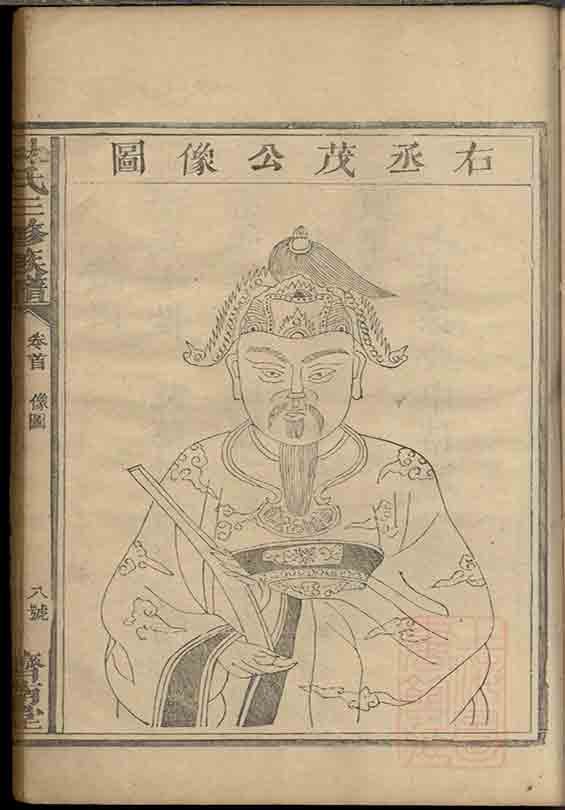 右丞茂公像圖
氏三修族譜
卷首 像圖
八號
濟南堂